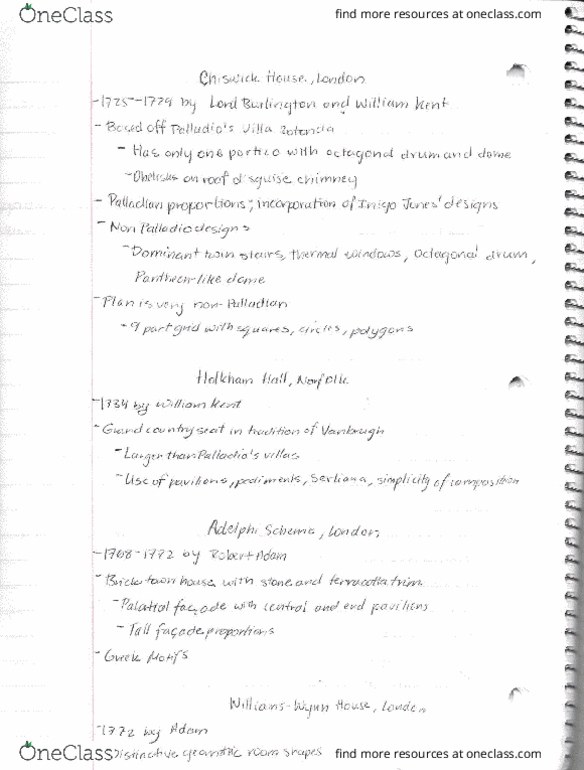 OneClass find more resources at oneclass.com
Chiswick House, London
- 1725-1729 by Lord Burlington and William Kent
- Based off Palladio's Villa Rotonda
- Has only one portico with octagonal drum and dome
- Obelisks on roof disguise chimney
- Palladian proportions; incorporation of Inigo Jones' designs
- Non Palladio designs
- Dominant twin stairs, thermal windows, octagonal drum,
Pantheon-like dome
- Plan is very non-Palladian
- 9 part grid with squares, circles, polygons
Holkham Hall, Norfolk
- 1734 by William Kent
- Grand country seat in tradition of Vanbrugh
- Larger than Palladio's villas
- Use of pavilions, pediments, Serliana, simplicity of composition
Adelphi Scheme, London
- 1768-1772 by Robert Adam
- Brick town house with stone and terracotta trim
- Palatial façade with central and end pavilions
- Tall façade proportions
- Greek Motifs
Williams-Wynn House, London
- 1772 by Adam
- Distinctive geometric room shapes
OneClass find more resources at oneclass.com